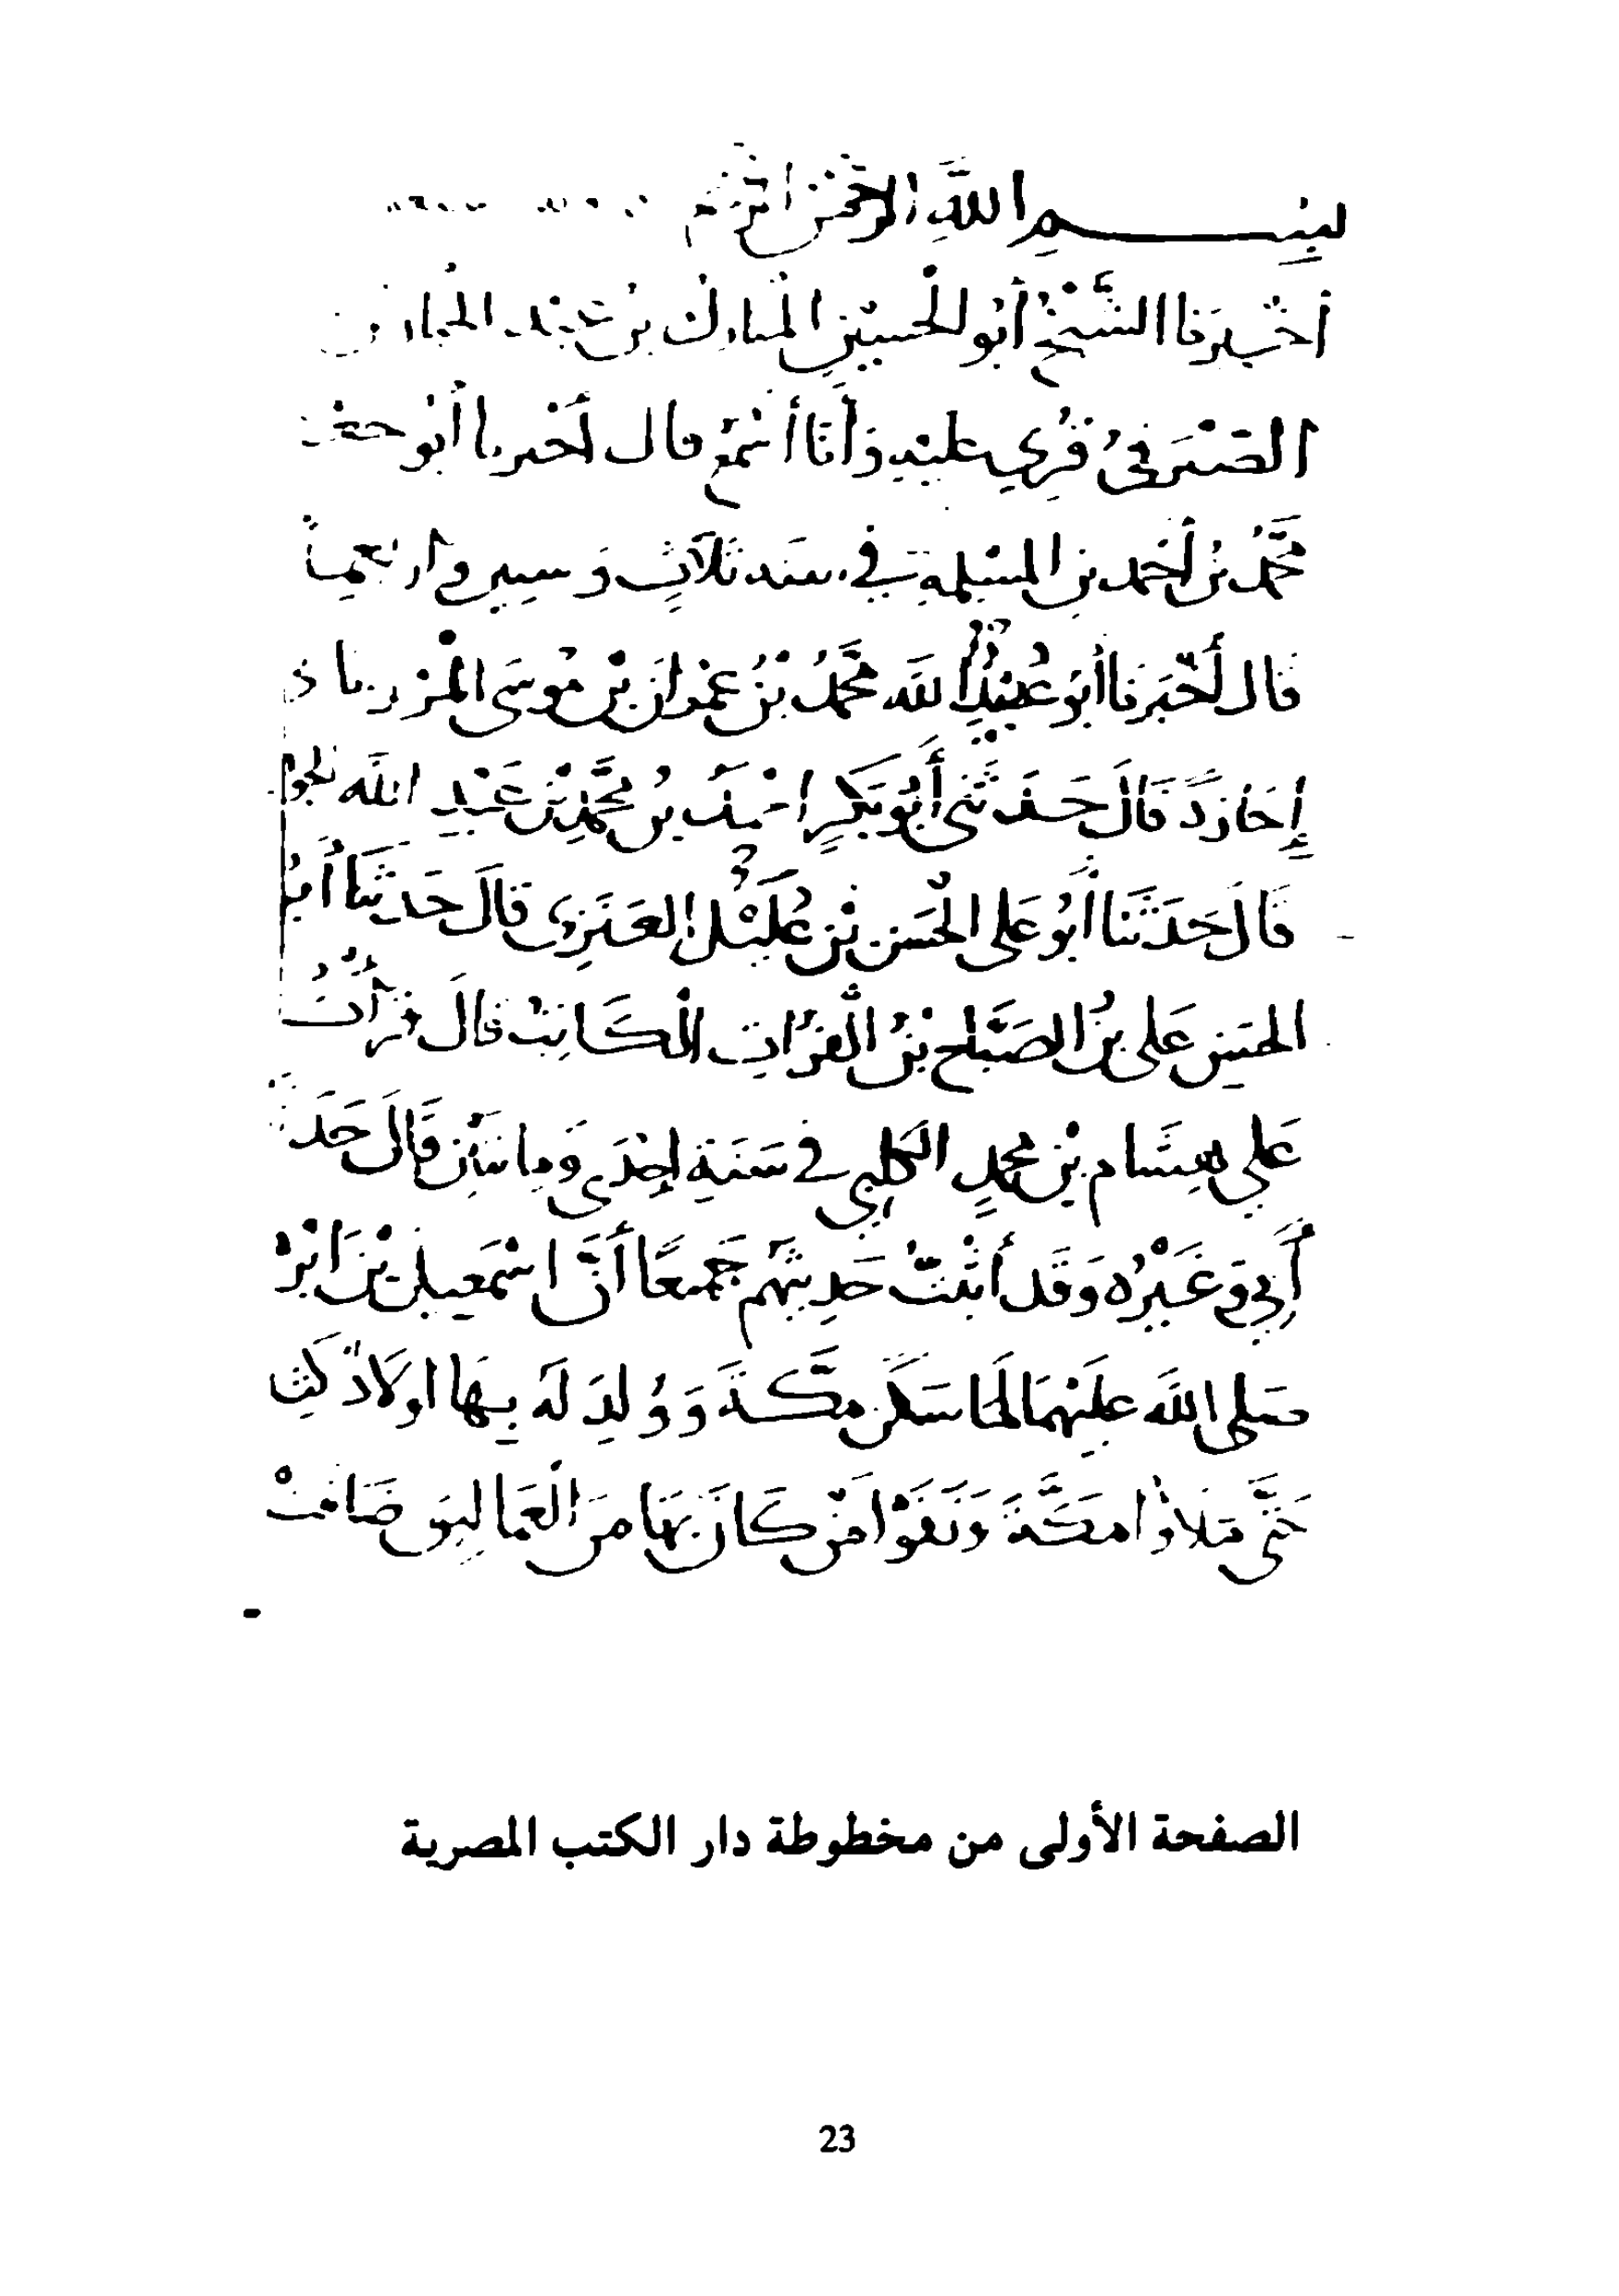 بِسْمِ اللَّهِ الرَّحْمَنِ الرَّحِيمِ
أَخْبَرَنَا الشَّيْخُ أَبُو الْحُسَيْنِ الْمُبَارَكُ بْنُ عَبْدِ الْجَبَّارِ بْنِ
الصَّيْرَفِيُّ قُرِئَ عَلَيْهِ وَأَنَا أَسْمَعُ قَالَ أَخْبَرَنَا أَبُو جَعْفَرٍ
مُحَمَّدُ بْنُ أَحْمَدَ بْنِ الْمُسْلِمَةِ فِي سَنَةِ ثَلَاثٍ وَسِتِّينَ وَأَرْبَعِمِا
قَالَ أَخْبَرَنَا أَبُو عُبَيْدِ اللَّهِ مُحَمَّدُ بْنُ عِمْرَانَ بْنِ مُوسَى الْمَرْزُبَانِ
إِجَازَةً قَالَ حَدَّثَنِي أَبُو بَكْرٍ أَحْمَدُ بْنُ مُحَمَّدِ بْنِ عَبْدِ اللَّهِ الجوا
قَالَ حَدَّثَنَا أَبُو عَلِي الْحَسَنُ بْنُ عُلَيْلٍ الْعَنَزِيُّ قَالَ حَدَّثَنَا أَبُو
الْحَسَنِ عَلِيُّ بْنُ الصَّبَّاحِ بْنِ الْفُرَاتِ الْكَاتِبُ قَالَ قَرَأْتُ
عَلَى هِشَامِ بْنِ مُحَمَّدٍ الْكَلْبِيِّ فِي سَنَةِ إِحْدَى وَمِائَتَيْنِ قَالَ حَدَّثَنَا
أَبِي وَغَيْرُهُ وَقَدْ أَثْبَتُّ حَدِيثَهُمْ جَمِيعًا أَنَّ اسْمَعِيلَ بْنَ ابْرَ
صَلَّى اللَّهُ عَلَيْهِمَا لَمَّا سَكَنَ مَكَّةَ وَوُلِدَ لَهُ بِهَا أَوْلَادٌ كَثِ
حَتَّى مَلَأُوا مَكَّةَ وَنَفَوْا مَنْ كَانَ بِهَا مِنَ الْعَمَالِيقِ ضَاقَتْ
الصفحة الأولى من مخطوطة دار الكتب المصرية
23